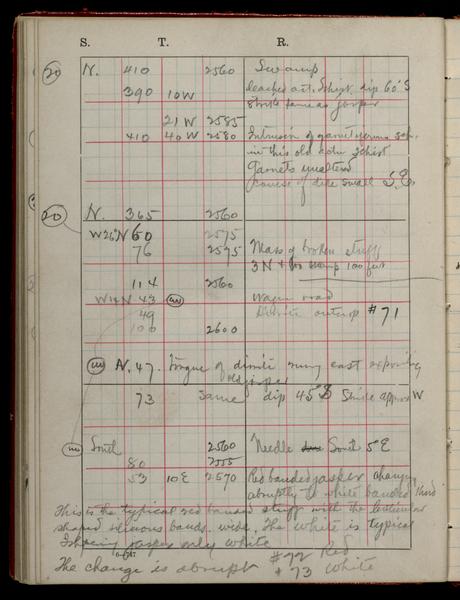 S. T. R.
20 N. 410 2560 Swamp
390 10W leached act. Schist dip 60°S
strike same as jasper
21 W 2585
410 40 W 2580 Intrusion of garnet
in this old schist
Garnets
course of dike small S.E.
20 N. 365 2560
W26N 60 2575
76 2575 Mass of broken stuff
3N + 100 feet
114 2560
W14N 43 Wagon road
49 outcrop #71
100 2600
N. 47. Tongue of diorite runs east exposing
jasper
73 same dip 45°S Strike approx W
South 2560 Needle South 5°E
80 2555
53 10 E 2570 Red banded jasper changes
abruptly to white banded
This is the typical red banded stuff with the lenticular
shaped bands. wide. The white is typical
jasper only white
The change is abrupt #72 Red
#73 White